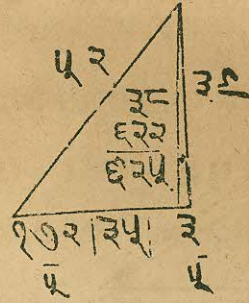 ५२
३९
३८
६२२
६२५
१७२ ३५ ३
५ ५